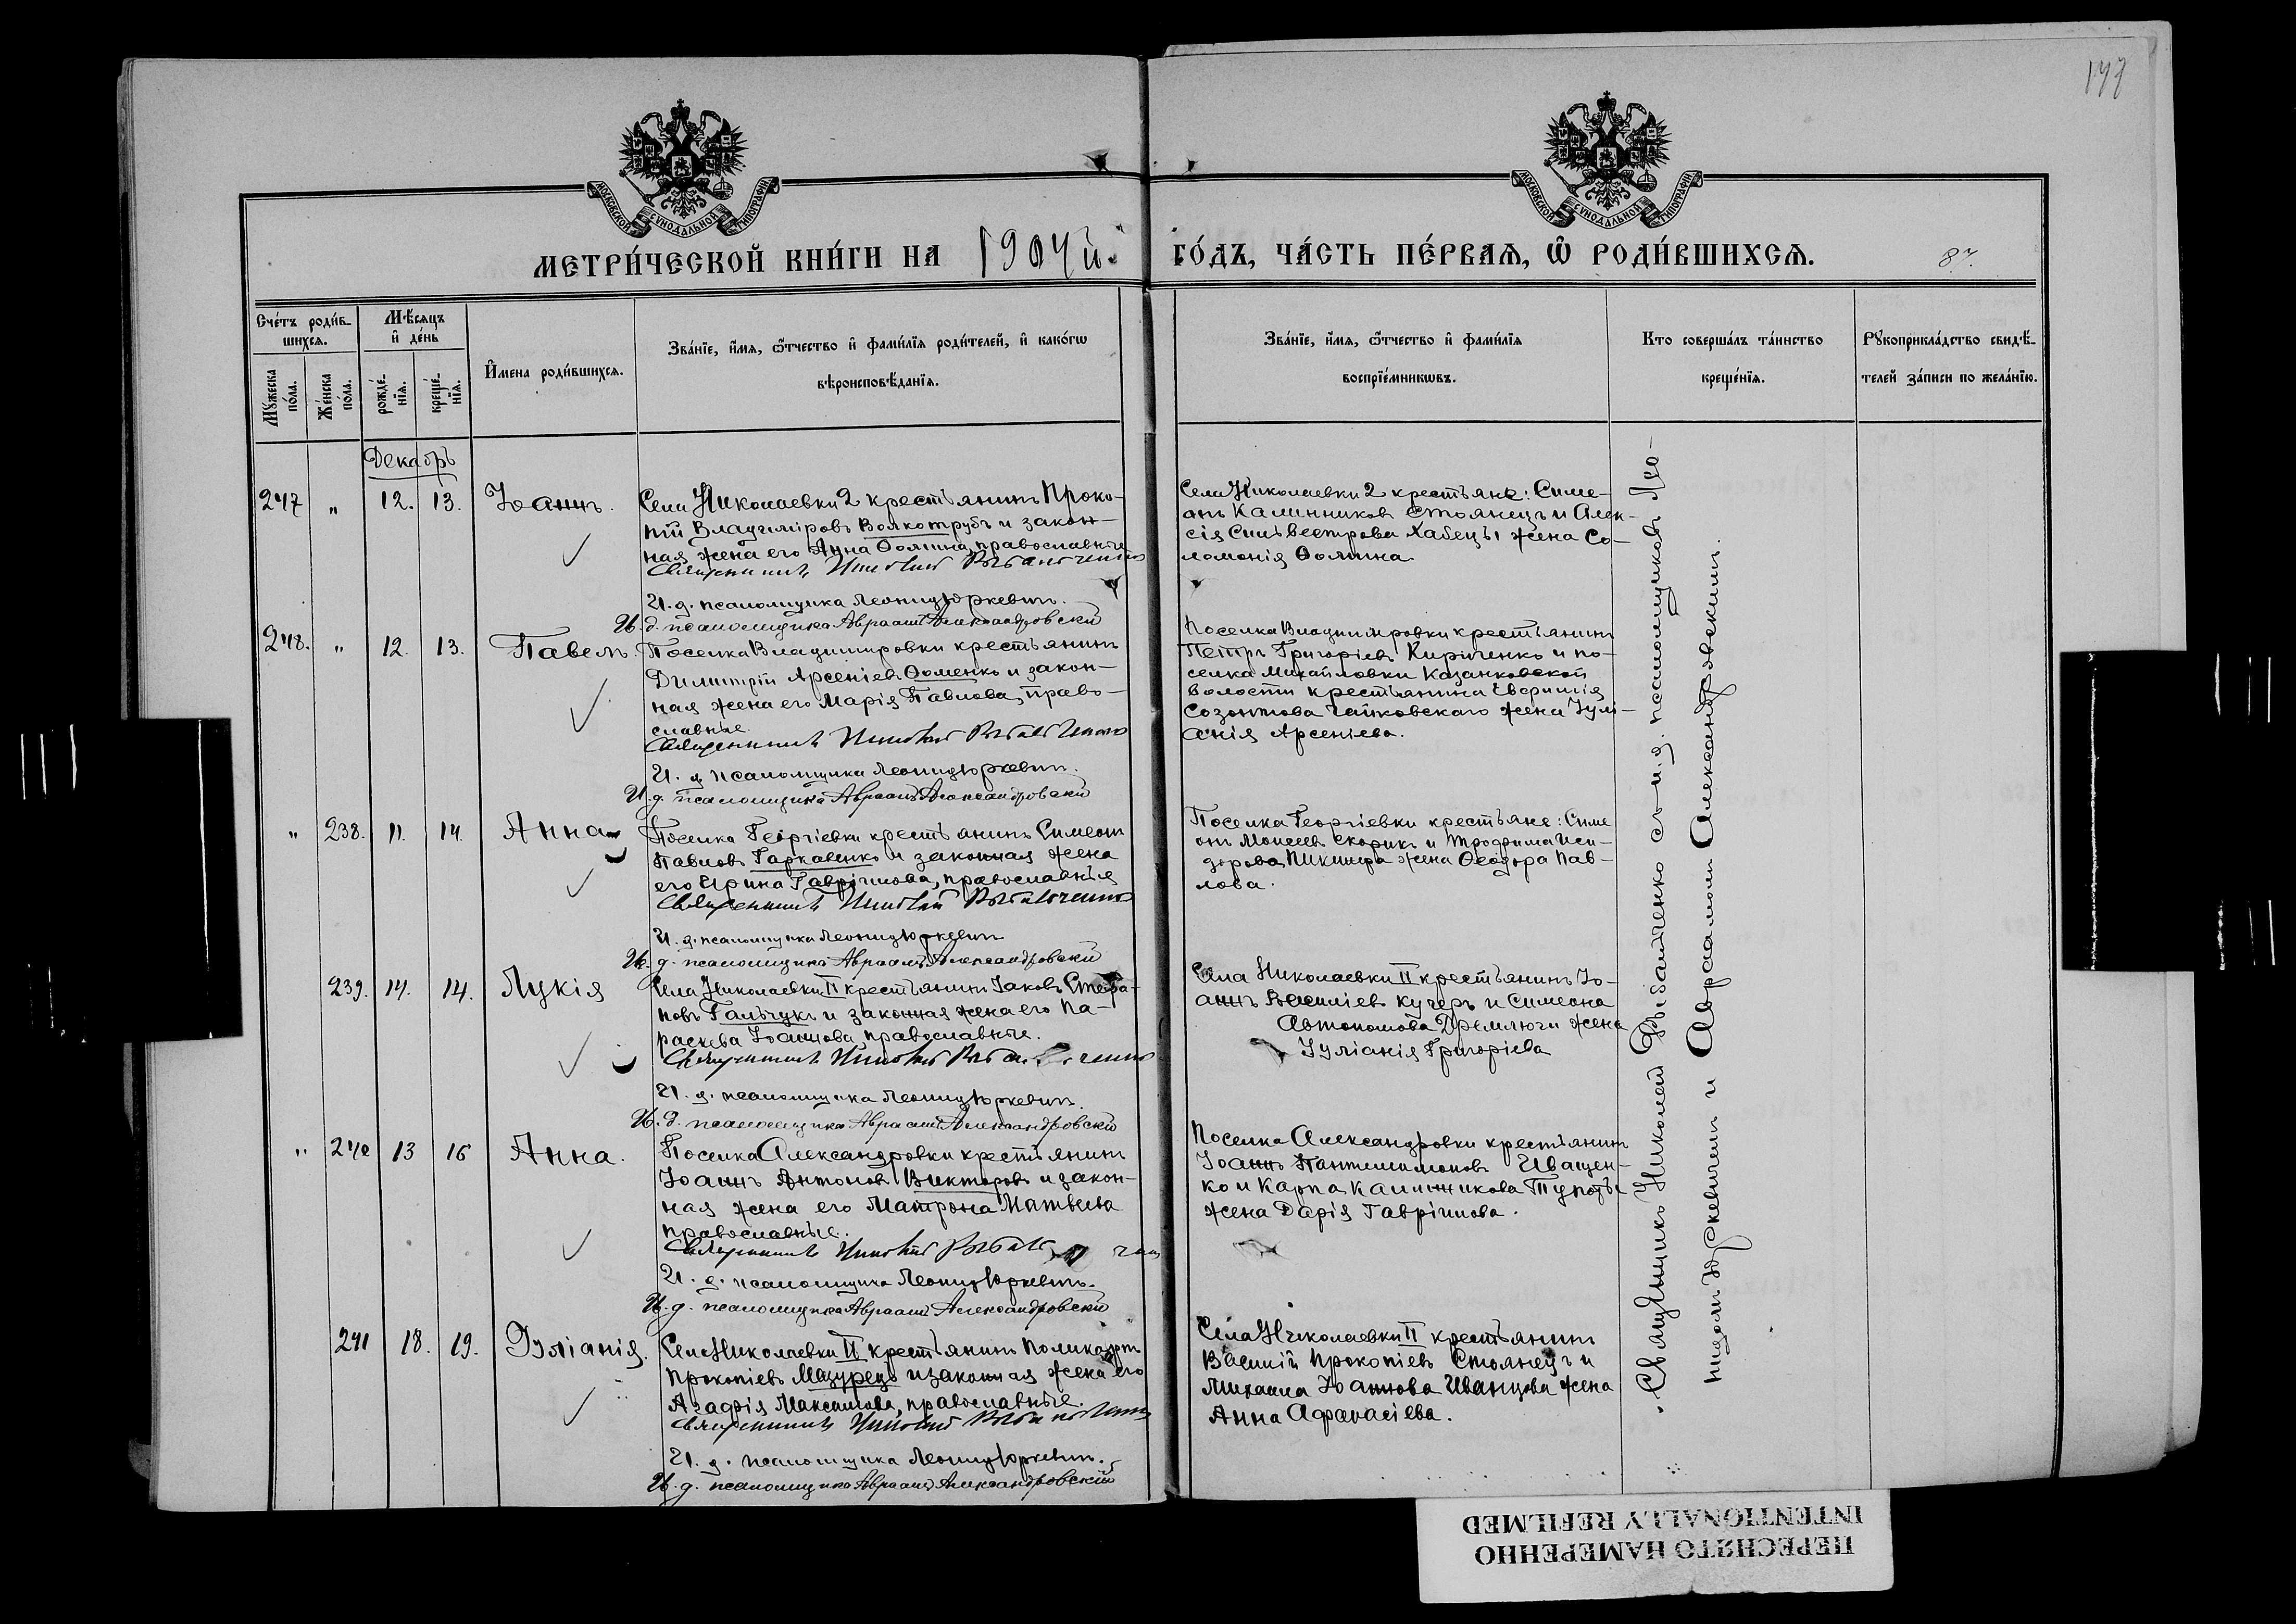 147
МОСКОВСКОЙ СѴНОДАЛЬНОЙ ТИПОГРАФІИ
МОСКОВСКОЙ СѴНОДАЛЬНОЙ ТИПОГРАФІИ
МЕТРИ́ЧЕСКОЙ КНИ́ГИ НА 1904й. ГО́ДЪ, ЧА́СТЬ ПЕ́РВАЯ, Ѽ РОДИ́ВШИХСЯ.
87.
Сче́тъ роди́в-
шихся.
Му́жеска по́ла.
Же́нска по́ла.
Мѣ́сяцъ
и҆ де́нь
рожде́-нїя.
креще́-нїя.
И҆мена роди́вшихся.
Зва́нїе, и҆́мя, ѻ҆́тчество и҆ фами́лїя роди́телей, и҆ како́гѡ
вѣроисповѣ́данїя.
Зва́нїе, и҆́мя, ѻ҆́тчество и҆ фами́лїя
воспрїе́мникѡвъ.
Кто соверша́лъ та́инство
креще́нїя.
Рꙋкоприкла́дство свидѣ́-
телей за́писи по жела́нїю.
Декабрь
247 " 12. 13. Іоаннъ.
Села Николаевки 2 крестьянинъ Проко-
пій Владиміровъ Волкотрубъ и закон-
ная жена его Анна Ѳомина, православные
Священникъ Николай
И. д. псаломщика Леонидъ Юркевичъ.
И. д. псаломщика Авраамъ Александровскій
Села Николаевки 2 крестьяне: Симе-
онъ Калинниковъ Стоянецъ и Алек-
сія Сильвестрова Хабецъ жена Со-
ломонія Ѳомина
248. " 12. 13. Павелъ.
Поселка Владимировки крестьянинъ
Димитрій Арсеніевъ Ѳоменко и закон-
ная жена его Марія Павлова, право-
славные.
Священникъ Николай
И. д. псаломщика Леонидъ Юркевичъ.
И. д. псаломщика Авраамъ Александровскій
Поселка Владимировки крестьянинъ
Петръ Григоріевъ Кириченко и по-
селка Михайловки Казанковской
волости крестьянина
Созонтова Чайковскаго жена Іулі-
анія Арсеніева.
" 238. 11. 14. Анна
Поселка Георгіевки крестьянинъ Симеонъ
Павловъ Гаркавенко и законная жена
его Ирина Гавріилова, православные
Священникъ Николай
И. д. псаломщика Леонидъ Юркевичъ
И. д. псаломщика Авраамъ Александровскій
Поселка Георгіевки крестьяне: Симе
онъ Моисеевъ Скорикъ и Трофима Иси-
дорова жена Ѳеодора Пав-
лова.
239. 14. 14. Лукія
Села Николаевки II крестьянинъ Іаковъ Стефа-
новъ Гальчукъ и законная жена его Па-
раскева Іоаннова, православные.
Священникъ Николай
И. д. псаломщика Леонидъ Юркевичъ.
И. д. псаломщика Авраамъ Александровскій
Села Николаевки II крестьянинъ Іо-
аннъ Василіевъ Кучеръ и Симеона
Автономова Дремлюги жена
Іуліанія Григоріева
" 240 13 16 Анна.
Поселка Александровки крестьянинъ
Іоаннъ Антоновъ Викторовъ и закон-
ная жена его Матрона Матвеева
православные.
Священникъ Николай
И. д. псаломщика Леонидъ Юркевичъ.
И. д. псаломщика Авраамъ Александровскій
Поселка Александровки крестьянинъ
Іоаннъ Пантелимоновъ Иващен-
ко и Карпа Калинникова
жена Дарія Гавріилова.
241 18. 19. Іуліанія.
Села Николаевки II крестьянинъ Поликарпъ
Прокопіевъ Мазурецъ и законная жена его
Агафія Максимова, православные.
Священникъ Николай
И. д. псаломщика Леонидъ Юркевичъ.
И. д. псаломщика Авраамъ Александровскій
Села Николаевки II крестьянинъ
Василій Прокопіевъ Стоянецъ и
Михаила Іоаннова Иванцова жена
Анна Афанасіева.
Священникъ Николай Рыбальченко съ и. д. псаломщиковъ Лео-
нидомъ Юркевичемъ и Авраамомъ Александровскимъ.
ПЕРЕСНЯТО НАМЕРЕННО
INTENTIONALLY REFILMED